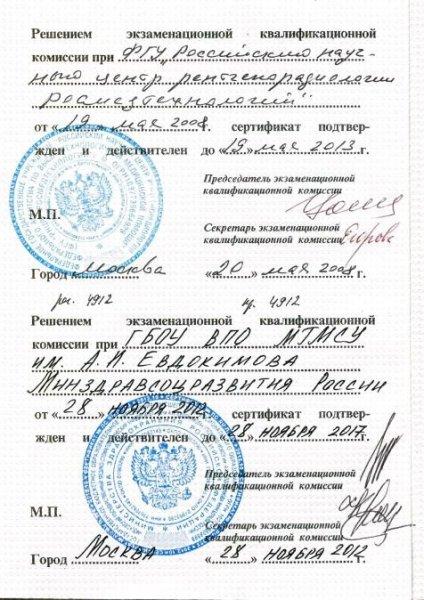 Решением экзаменационной квалификационной
комиссии при ФГУ „Российский науч-
ный центр рентгенорадиологии
Росмедтехнологий"
от «19» мая 2008г. сертификат подтвер-
жден и действителен до «19» мая 2013 г.
Председатель экзаменационной
квалификационной комиссии
М.П.
Секретарь экзаменационной
квалификационной комиссии
Город Москва «20» мая 2008 г.
рег. 4912 4912
Решением экзаменационной квалификационной
комиссии при ГБОУ ВПО МГМСУ
им. А.И. Евдокимова
Минздравсоцразвития России
от «28» ноября 2012г. сертификат подтвер-
жден и действителен до «28» ноября 2017г.
Председатель экзаменационной
квалификационной комиссии
М.П.
Секретарь экзаменационной
квалификационной комиссии
Город Москва «28» ноября 2012